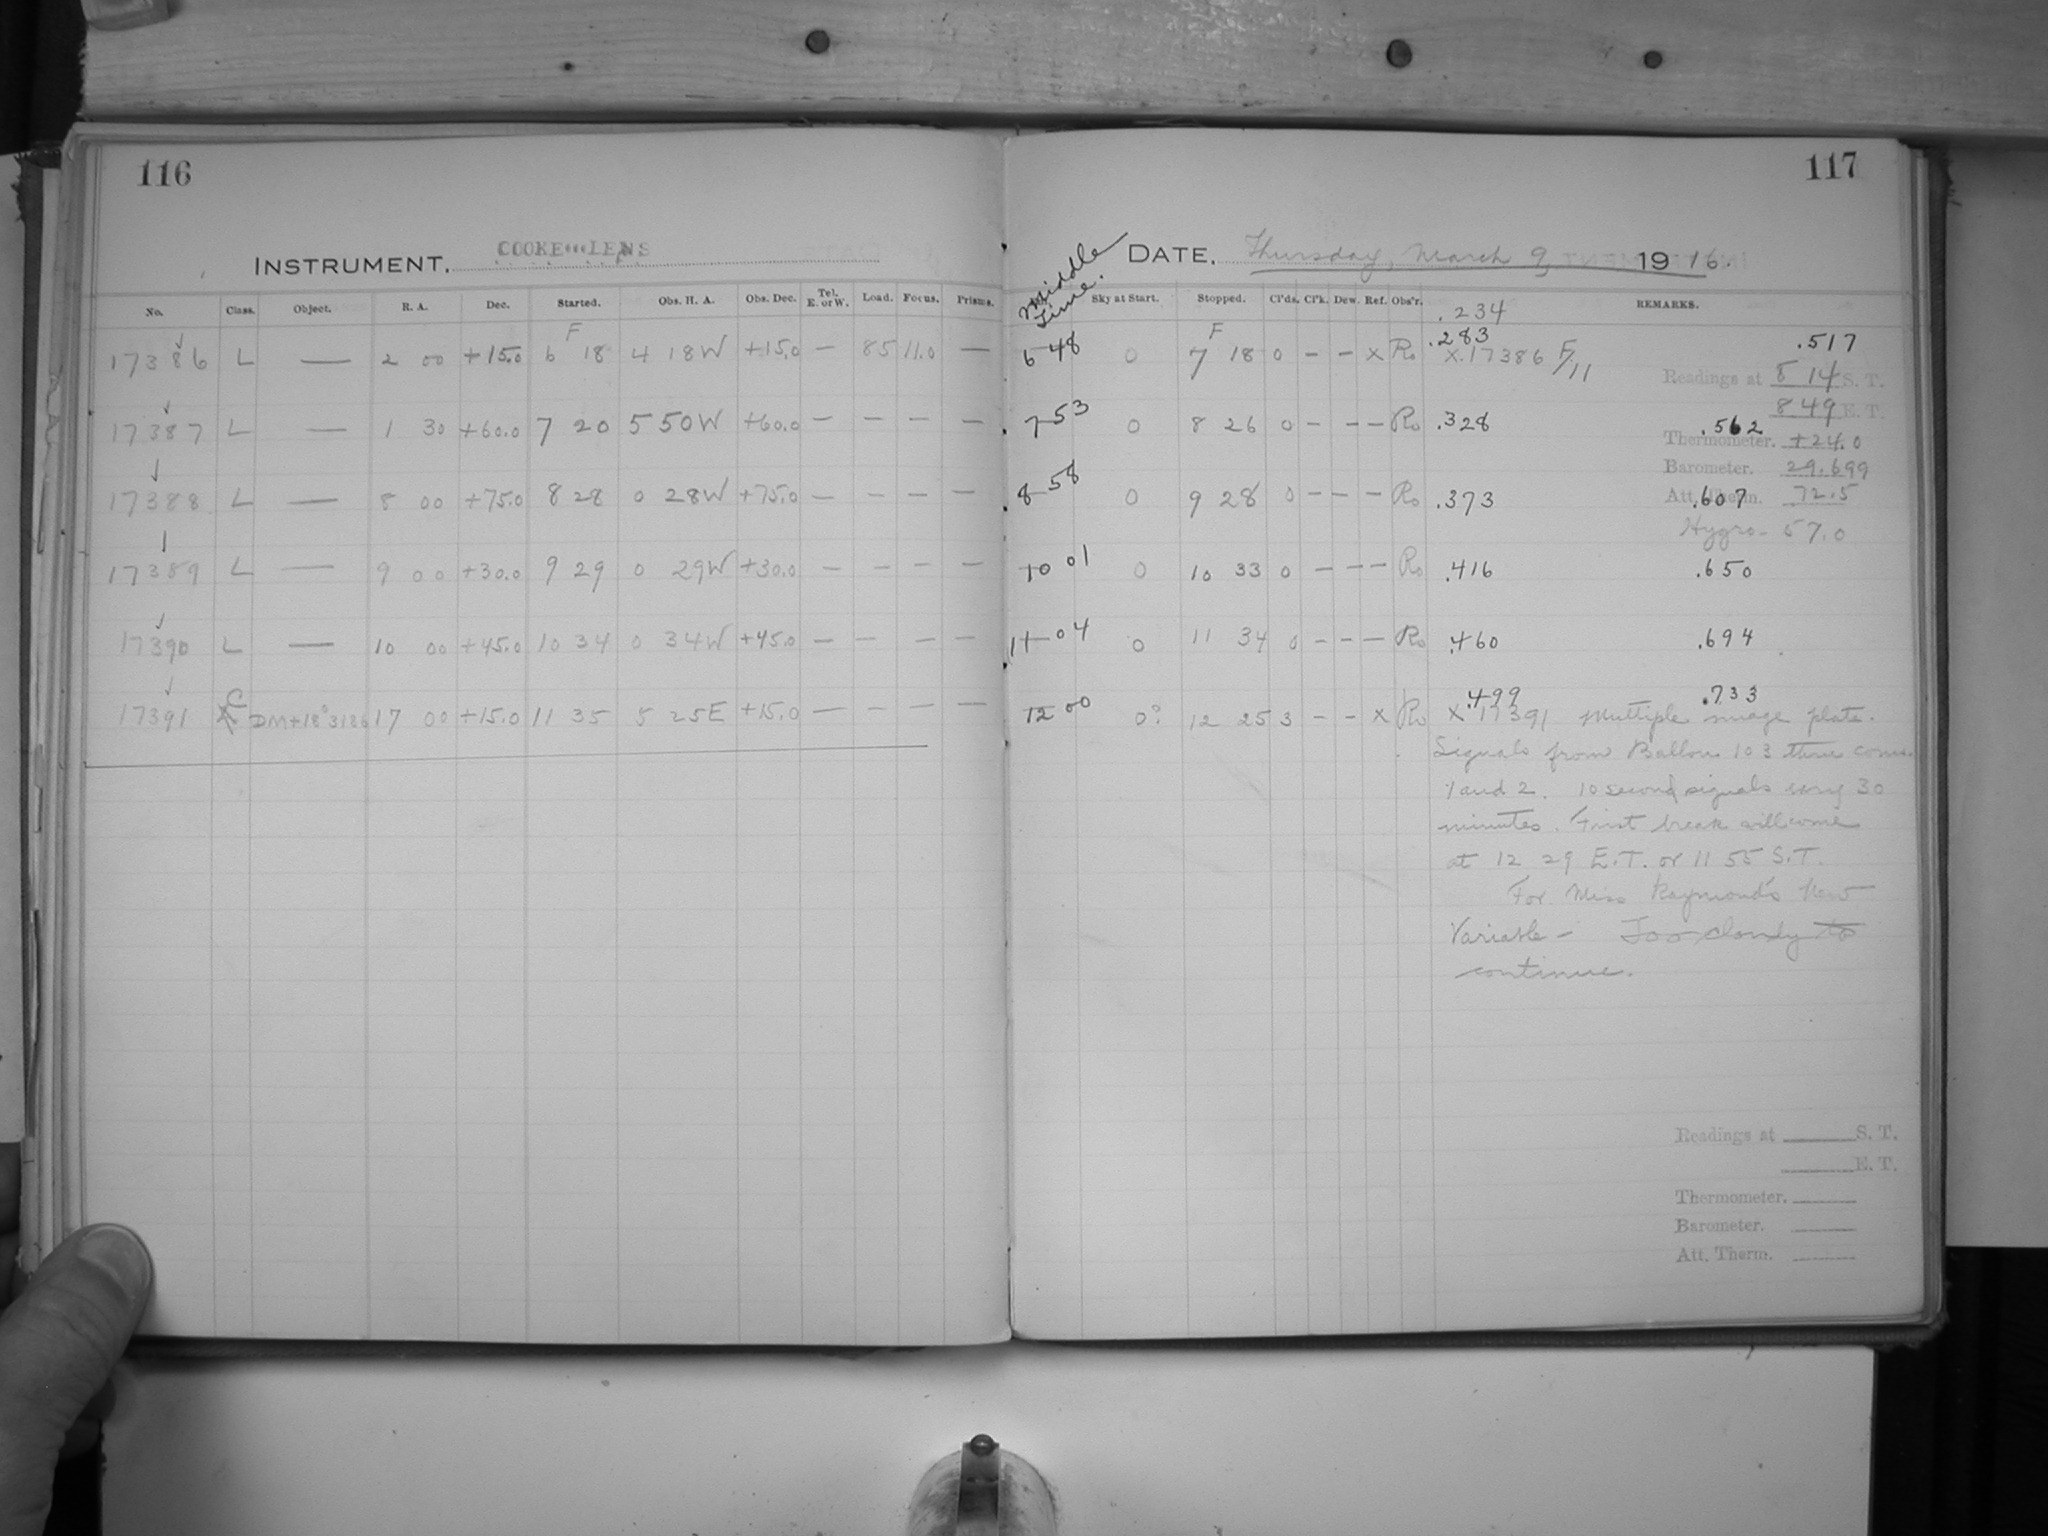 116
117
INSTRUMENT. COOKE LENS
DATE. Thursday, March 9, 1916.
No. Class. Object. R. A. Dec. Started. Obs. H. A. Obs. Dec. Tel. E. or W. Load. Focus. Prisms. Middle Time. Sky at Start. Stopped. Cl'ds. Cl'k. Dew. Ref. Obs'r. REMARKS.
.234
17386 L — 2 00 +15.0 F 6 18 4 18W +15.0 — 85 11.0 — 6 48 0 F 7 18 0 - - x Ro .283 .517
X.17386 F/11
Readings at 8 14 S. T.
8 49 E. T.
17387 L — 1 30 +60.0 7 20 5 50W +60.0 — — — — 7 53 0 8 26 0 - - - Ro .328 .562
Thermometer. +24.0
Barometer. 29.699
17388 L — 8 00 +75.0 8 28 0 28W +75.0 — — — — 8 58 0 9 28 0 - - - Ro .373 .607
Att. Therm. 72.5
Hygro- 57.0
17389 L — 9 00 +30.0 9 29 0 29W +30.0 — — — — 10 01 0 10 33 0 - - - Ro .416 .650
17390 L — 10 00 +45.0 10 34 0 34W +45.0 — — — — 11 04 0 11 34 0 - - - Ro .460 .694
17391 C DM+18°3186 17 00 +15.0 11 35 5 25E +15.0 — — — — 12 00 0? 12 25 3 - - x Ro .499 .733
X 17391 Multiple image plate.
Signals from 103 thru
1 and 2. 10 second signals every 30
minutes. First break will come
at 12 29 E.T. or 11 55 S.T.
For Miss Raymond's New
Variable - Too cloudy to
continue.
Readings at S. T.
E. T.
Thermometer.
Barometer.
Att. Therm.